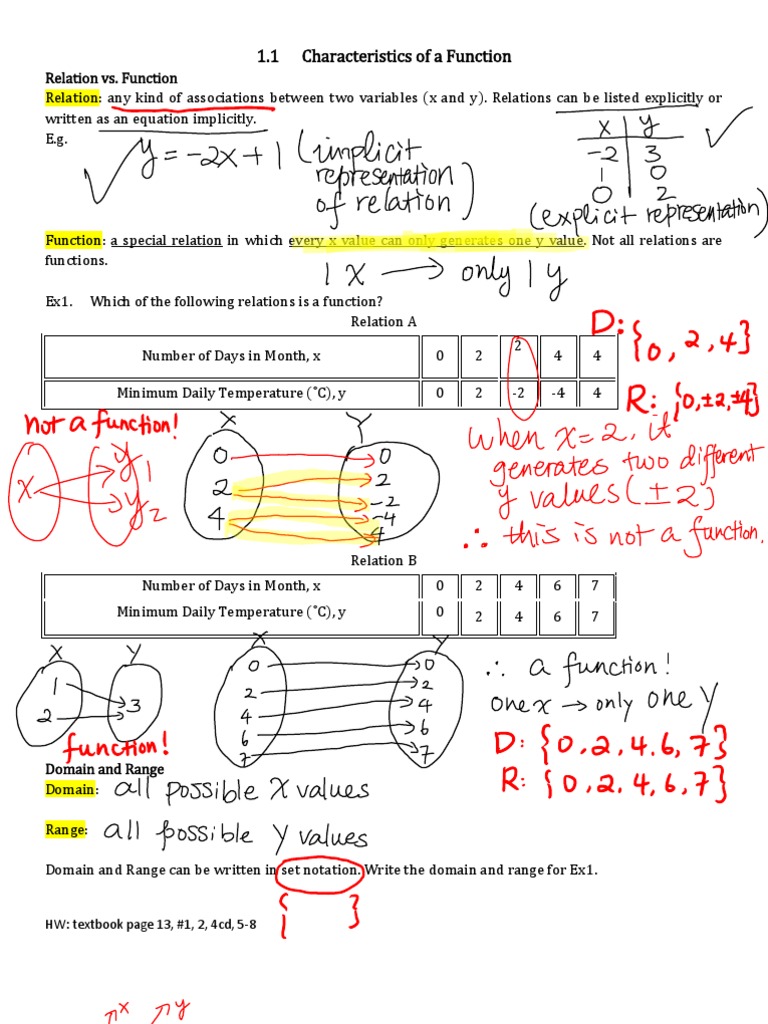 1.1 Characteristics of a Function
Relation vs. Function
Relation: any kind of associations between two variables (x and y). Relations can be listed explicitly or
written as an equation implicitly.
E.g.
y = -2x + 1 (implicit
representation
of relation)
x | y
-2 | 3
1 | 0
0 | 2
(explicit representation)
Function: a special relation in which every x value can only generates one y value. Not all relations are
functions.
1 x → only 1 y
Ex1. Which of the following relations is a function?
Relation A
Number of Days in Month, x 0 2 2 4 4
Minimum Daily Temperature (˚C), y 0 2 -2 -4 4
D: {0, 2, 4}
R: {0, ±2, ±4}
not a function!
x y1
y2
X Y
0 0
2 2
4 -2
-4
4
when x = 2, it
generates two different
y values (±2)
∴ this is not a function.
Relation B
Number of Days in Month, x 0 2 4 6 7
Minimum Daily Temperature (˚C), y 0 2 4 6 7
X Y
1 3
2
function!
X Y
0 0
2 2
4 4
6 6
7 7
∴ a function!
one x → only one y
D: {0, 2, 4, 6, 7}
R: {0, 2, 4, 6, 7}
Domain and Range
Domain: all possible X values
Range: all possible Y values
Domain and Range can be written in set notation. Write the domain and range for Ex1.
{ }
HW: textbook page 13, #1, 2, 4cd, 5-8
x y